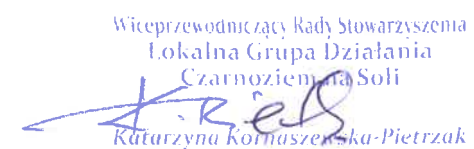 Wiceprzewodniczący Rady Stowarzyszenia
Lokalna Grupa Działania
Czarnoziem na Soli
Katarzyna Kornaszewska-Pietrzak